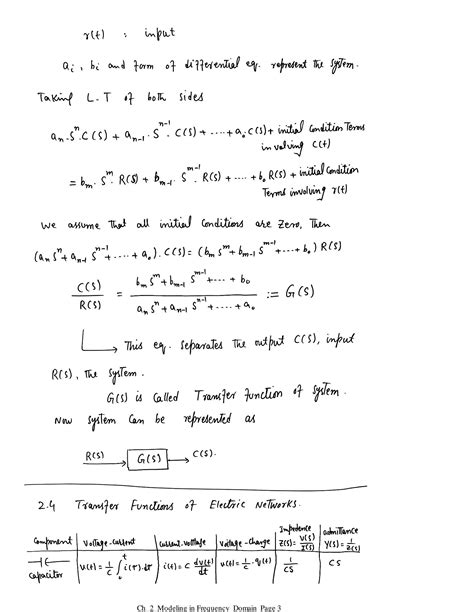 r(t) : input
ai, bi and form of differential eq. represent the system.
Taking L.T of both sides
an.S^n.C(S) + an-1.S^n-1.C(S) + ..... + a0 C(S) + initial Condition Terms
involving C(t)
= bm.S^m.R(S) + bm-1.S^m-1.R(S) + .... + b0 R(S) + initial Condition
Terms involving r(t)
we assume that all initial Conditions are zero, Then
(an S^n + an-1 S^n-1 + ..... + a0).C(S) = (bm S^m + bm-1 S^m-1 + ... + b0) R(S)
C(S)/R(S) = (bm S^m + bm-1 S^n-1 + .... + b0)/(an S^n + an-1 S^n-1 + ..... + a0) := G(S)
This eq. separates the output C(S), input
R(S), the system.
G(S) is called Transfer function of system.
Now system can be represented as
R(S) G(S) C(S).
2.4 Transfer Functions of Electric Networks.
Component Voltage-current current-voltage voltage-charge Impedence Z(S) = V(S)/I(S) admittance Y(S) = 1/Z(S)
capacitor v(t) = 1/C ∫0^t i(τ).dτ i(t) = C dv(t)/dt v(t) = 1/C . q(t) 1/CS CS
Ch_2_Modeling in Frequency_Domain Page 3